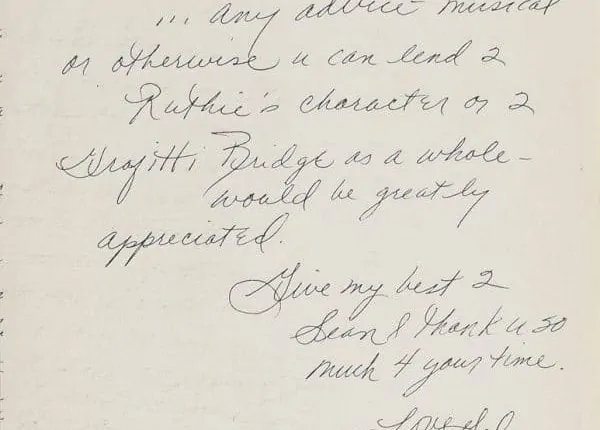 ... any advice musical
or otherwise u can lend 2
Ruthie's character or 2
Grafitti Bridge as a whole -
would be greatly
appreciated.
Give my best 2
Sean & thank u so
much 4 your time.
Love